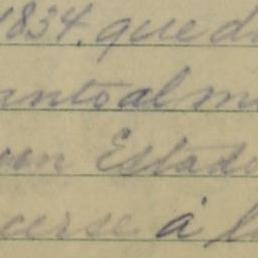 1834. que d
anto al m
un Estad
cerse á l